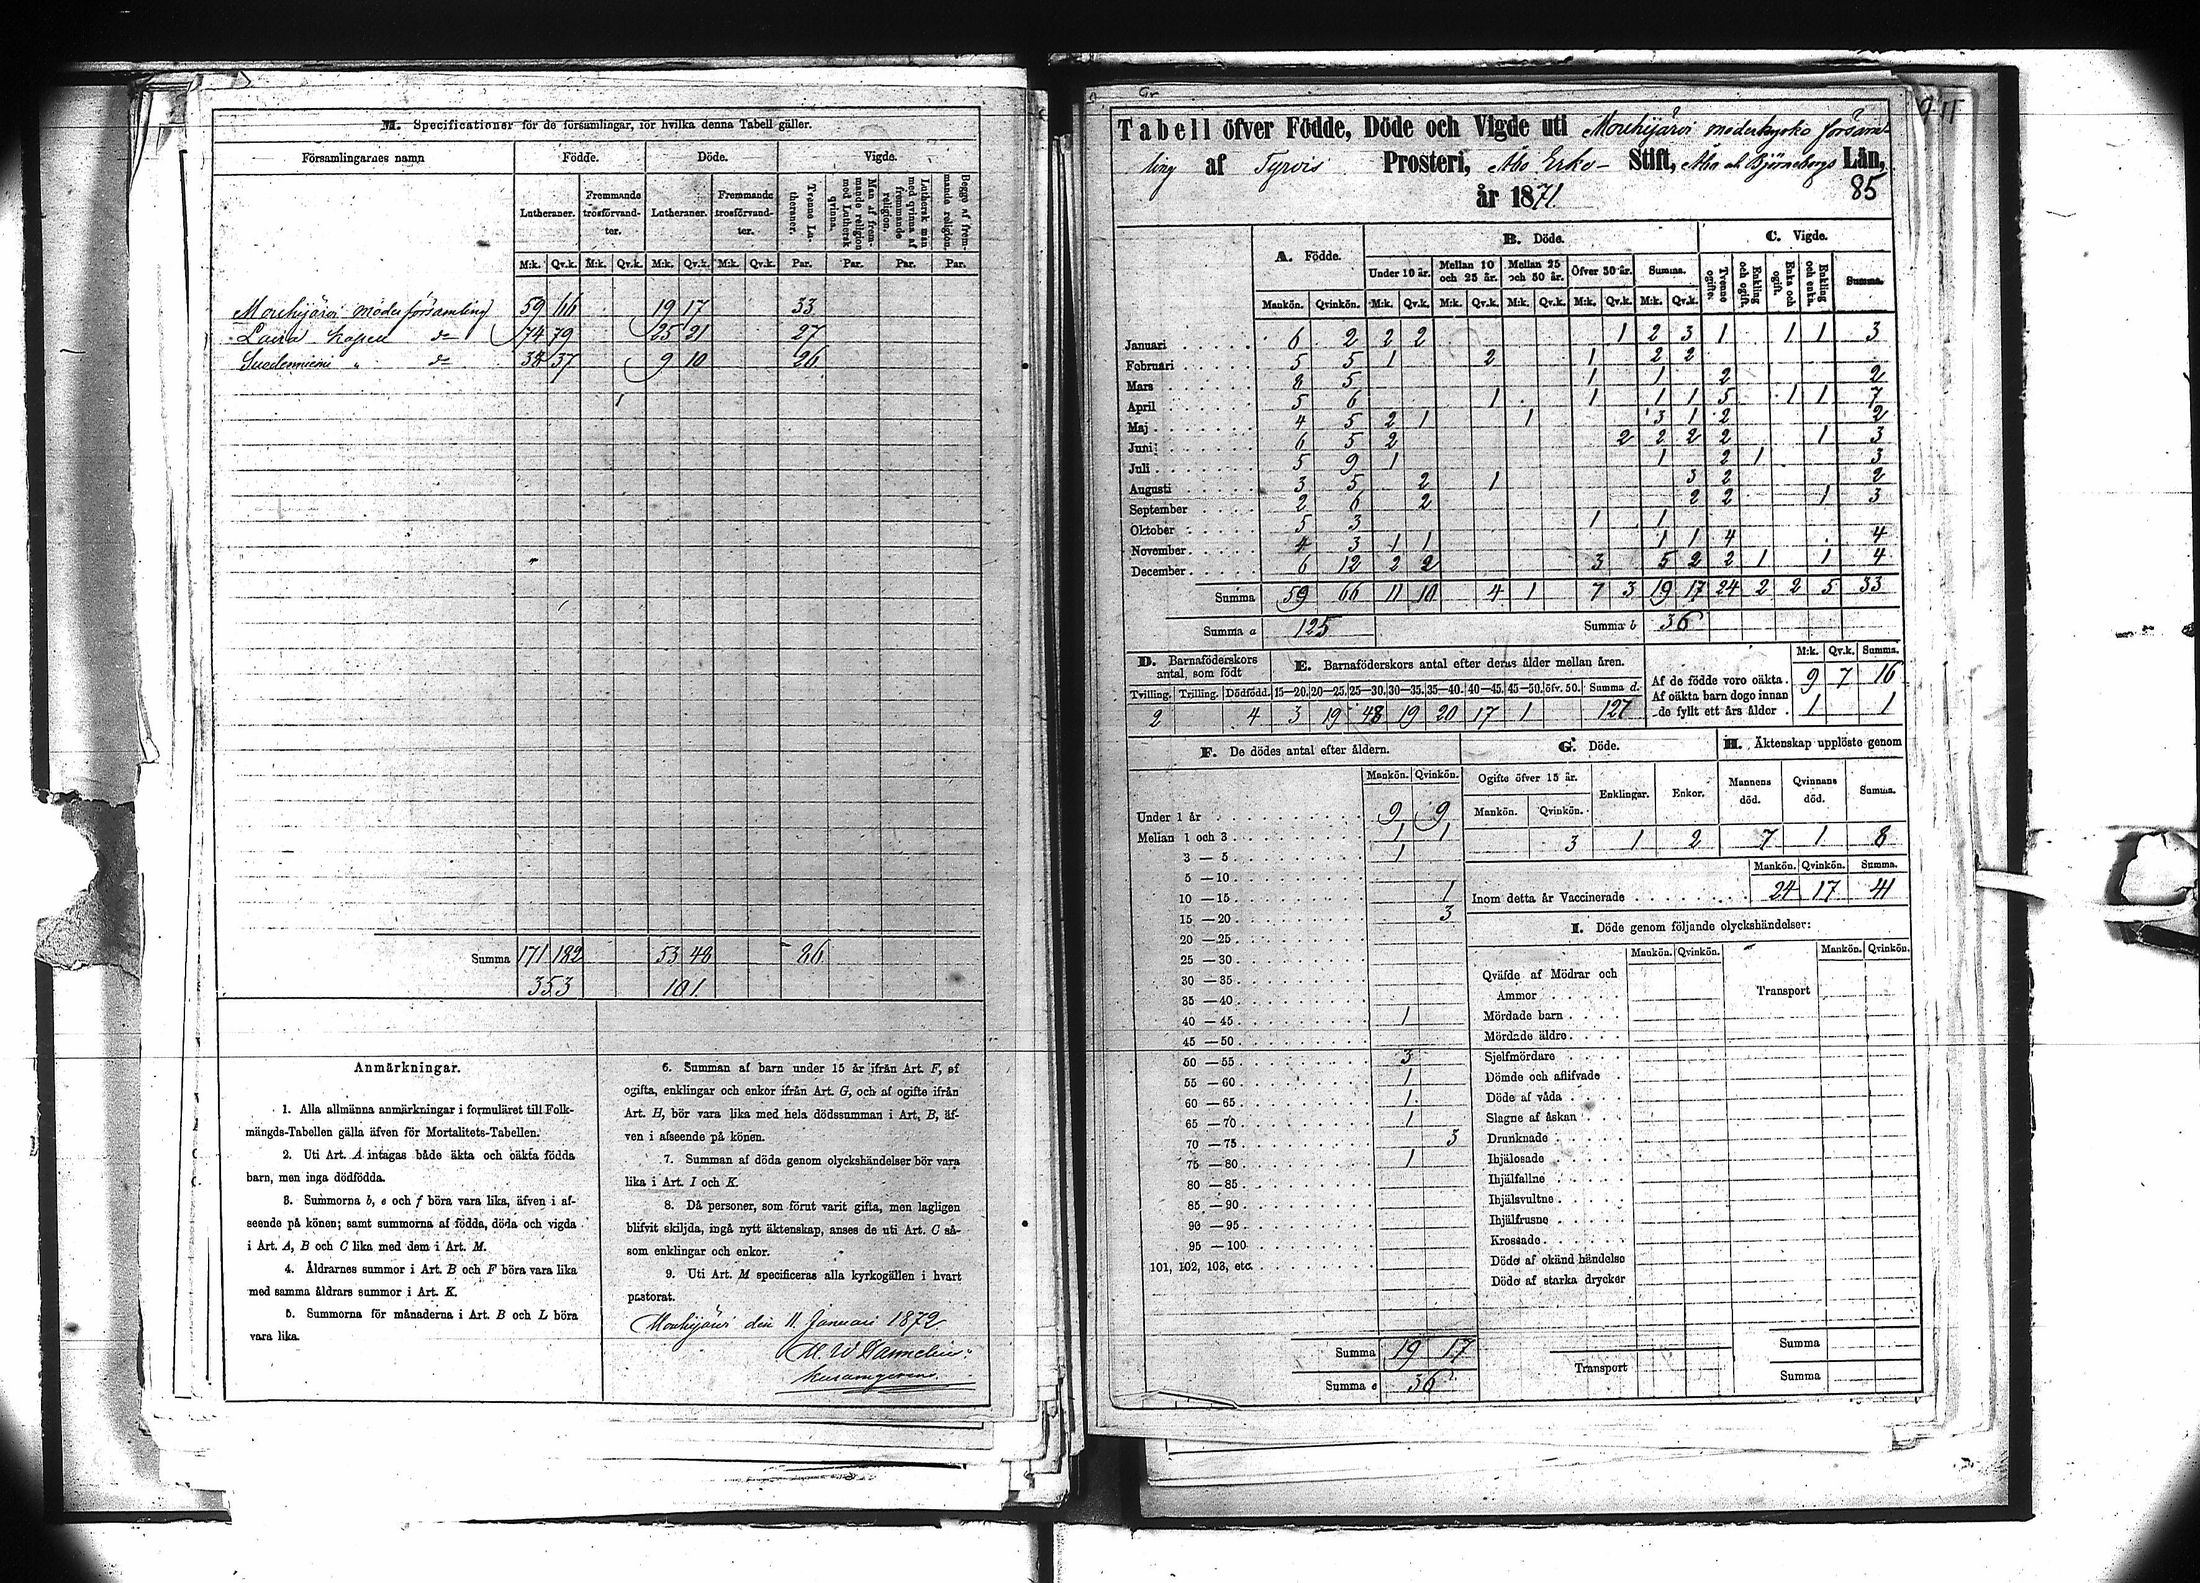 M. Specificationer för de församlingar, för hvilka denna Tabell gäller.
Församlingarnes namn Födde. Döde. Vigde.
Lutheraner. Fremmande trosförvandter. Lutheraner. Fremmande trosförvandter. Tvenne Lutheraner. Man af fremmande religion med Luthersk qvinna. Luthersk man med qvinna af fremmande religion. Begge af fremmande religion.
M:k. Qv.k. M:k. Qv.k. M:k. Qv.k. M:k. Qv.k. Par. Par. Par. Par.
Mouhijärvi moderförsamling 59 66 19 17 33
Lavia Kapell do 74 79 25 21 27
Suodenniemi " do 38 37 9 10 26
Summa 171 182 53 48 86
353 101
Anmärkningar.
1. Alla allmänna anmärkningar i formuläret till Folk-
mängds-Tabellen gälla äfven för Mortalitets-Tabellen.
2. Uti Art. A intagas både äkta och oäkta födda
barn, men inga dödfödda.
3. Summorna b, e och f böra vara lika, äfven i af-
seende på könen; samt summorna af födda, döda och vigda
i Art. A, B och C lika med dem i Art. M.
4. Åldrarnes summor i Art. B och F böra vara lika
med samma åldrars summor i Art. K.
5. Summorna för månaderna i Art. B och L böra
vara lika.
6. Summan af barn under 15 år ifrån Art. F, af
ogifta, enklingar och enkor ifrån Art. G, och af ogifte ifrån
Art. H, bör vara lika med hela dödssumman i Art, B, äf-
ven i afseende på könen.
7. Summan af döda genom olyckshändelser bör vara
lika i Art. I och K.
8. Då personer, som förut varit gifta, men lagligen
blifvit skiljda, ingå nytt äktenskap, anses de uti Art. C så-
som enklingar och enkor.
9. Uti Art. M specificeras alla kyrkogällen i hvart
pastorat.
Mouhijärvi den 11. Januari 1872
Tabell öfver Födde, Döde och Vigde uti Mouhijärvi moderkyrko försam-
ling af Tyrvis Prosteri, Åbo Erke- Stift, Åbo och Björneborgs Län,
år 1871 85
A. Födde. B. Döde. C. Vigde.
Under 10 år. Mellan 10 och 25 år. Mellan 25 och 50 år. Öfver 50 år. Summa. Tvenne ogifte. Enkling och ogift. Enka och ogift. Enkling och enka. Summa.
Mankön. Qvinkön. M:k. Qv.k. M:k. Qv.k. M:k. Qv.k. M:k. Qv.k. M:k. Qv.k.
Januari 6 2 2 2 1 2 3 1 1 1 3
Februari 5 5 1 2 1 2 2
Mars 8 5 1 1 2 2
April 5 6 1 1 1 1 5 1 1 7
Maj 4 5 2 1 1 3 1 2 2
Juni 6 5 2 2 2 2 2 1 3
Juli 5 9 1 1 2 1 3
Augusti 3 5 2 1 3 2 2
September 2 6 2 2 2 1 3
Oktober 5 3 1 1
November 4 3 1 1 1 1 4 4
December 6 12 2 2 3 5 2 2 1 1 4
Summa 59 66 11 10 4 1 7 3 19 17 24 2 2 5 33
Summa a 125 Summa b 36
D. Barnaföderskors antal, som födt
Tvilling. Trilling. Dödfödd.
2 4
E. Barnaföderskors antal efter deras ålder mellan åren.
15—20. 20—25. 25—30. 30—35. 35—40. 40—45. 45—50. öfv. 50. Summa d.
3 19 48 19 20 17 1 127
M:k. Qv.k. Summa.
Af de födde voro oäkta. 9 7 16
Af oäkta barn dogo innan
de fyllt ett års ålder . 1 1
F. De dödes antal efter åldern.
Mankön. Qvinkön.
Under 1 år 9 9
Mellan 1 och 3 1 1
3 — 5 1
5 — 10
10 — 15 1
15 — 20 3
20 — 25
25 — 30
30 — 35
35 — 40
40 — 45 1
45 — 50
50 — 55 3
55 — 60 1
60 — 65 1
65 — 70 1
70 — 75 3
75 — 80 1
80 — 85
85 — 90
90 — 95
95 — 100
101, 102, 103, etc.
Summa 19 17
Summa e 36
G. Döde.
Ogifte öfver 15 år. Enklingar. Enkor.
Mankön. Qvinkön.
3 1 2
H. Äktenskap upplöste genom
Mannens död. Qvinnans död. Summa.
7 1 8
Mankön. Qvinkön. Summa.
Inom detta år Vaccinerade 24 17 41
I. Döde genom följande olyckshändelser:
Mankön. Qvinkön. Mankön. Qvinkön.
Qväfde af Mödrar och
Ammor Transport
Mördade barn
Mördade äldre
Sjelfmördare
Dömde och aflifvade
Döde af våda
Slagne af åskan
Drunknade
Ihjälosade
Ihjälfallne
Ihjälsvultne
Ihjälfrusne
Krossade
Döde af okänd händelse
Döde af starka drycker
Transport Summa
Summa